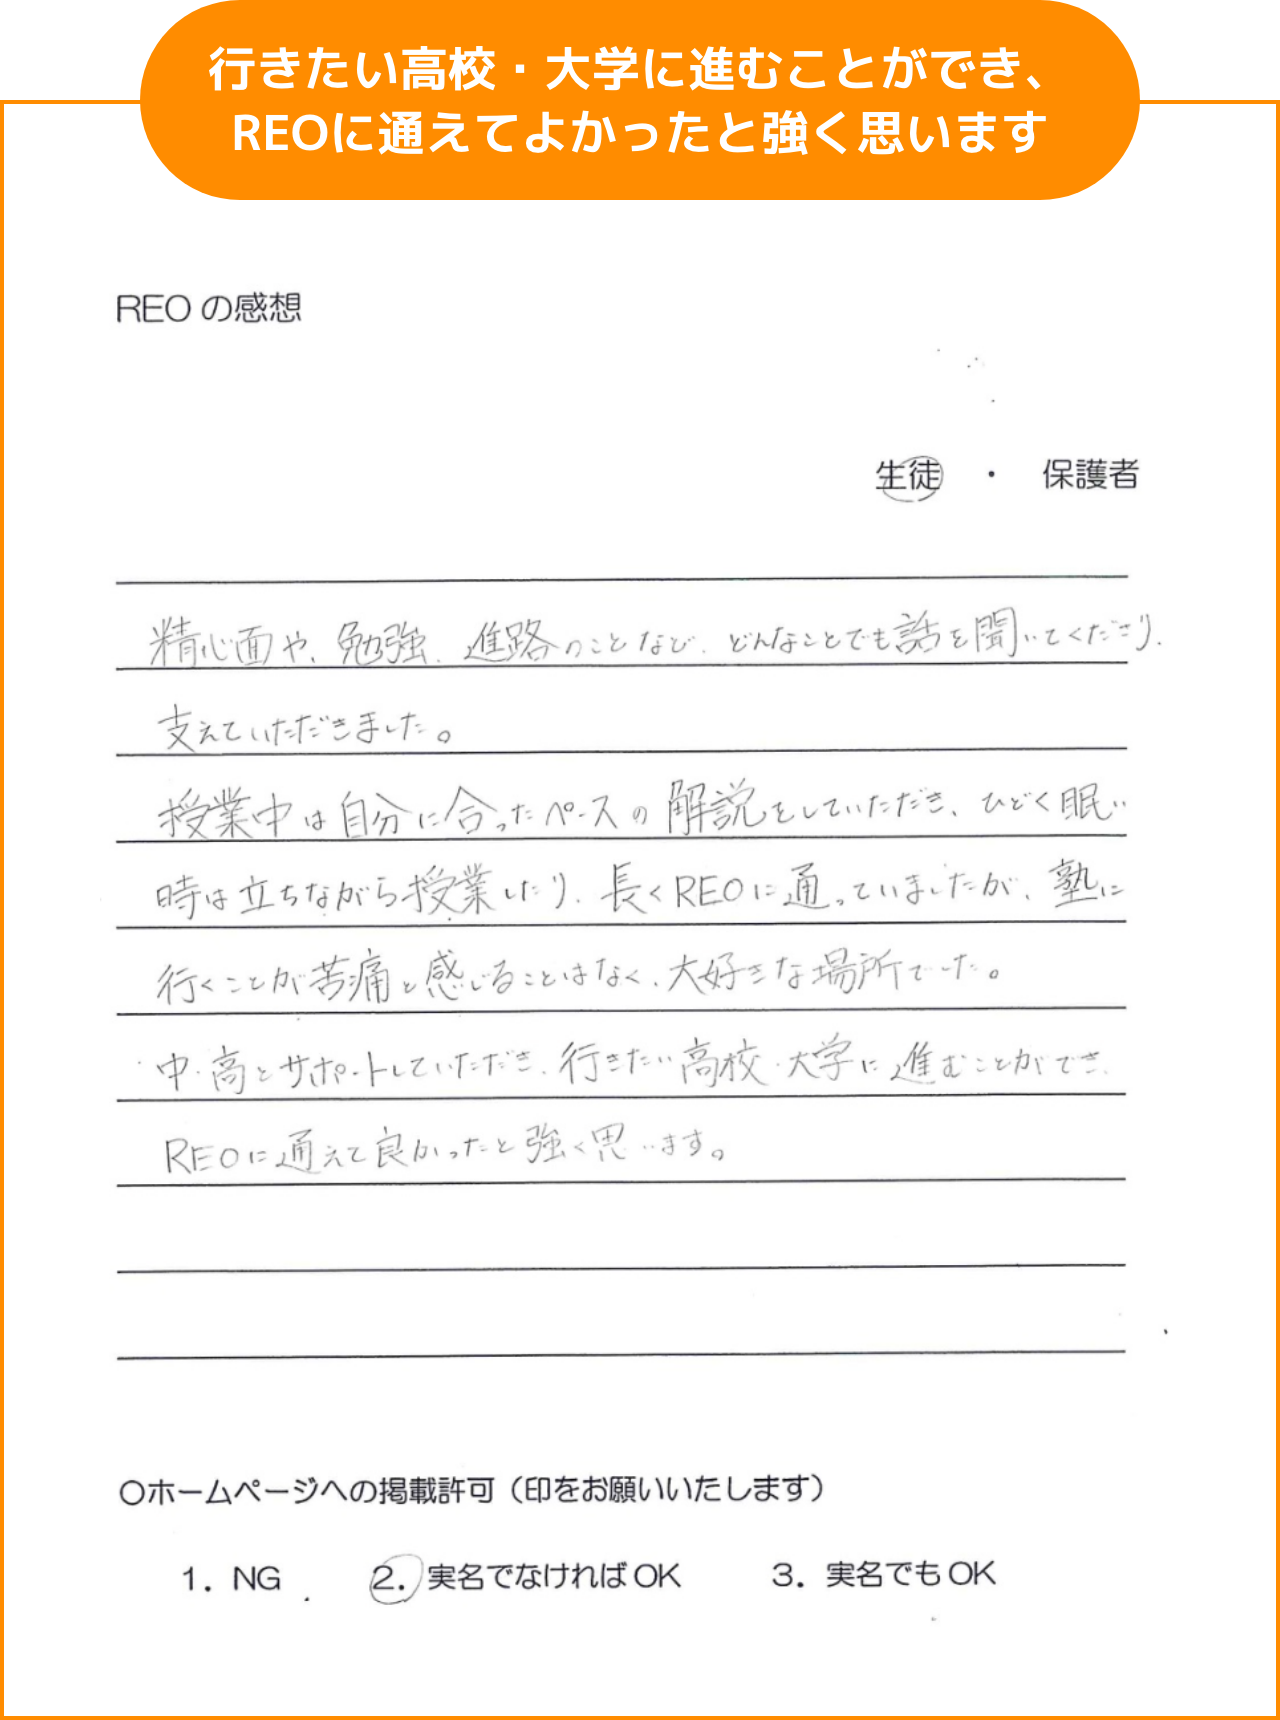 行きたい高校・大学に進むことができ、
REOに通えてよかったと強く思います
REOの感想
生徒 ・ 保護者
精心面や、勉強、進路のことなど、どんなことでも話を聞いてくださり、
支えていただきました。
授業中は自分に合ったペースの解説をしていただき、ひどく眠い
時は立ちながら授業したり、長くREOに通っていましたが、塾に
行くことが苦痛と感じることはなく、大好きな場所でした。
中・高とサポートしていただき、行きたい高校・大学に進むことができ、
REOに通えて良かったと強く思います。
○ホームページへの掲載許可（印をお願いいたします）
1. NG 2. 実名でなければOK 3. 実名でもOK